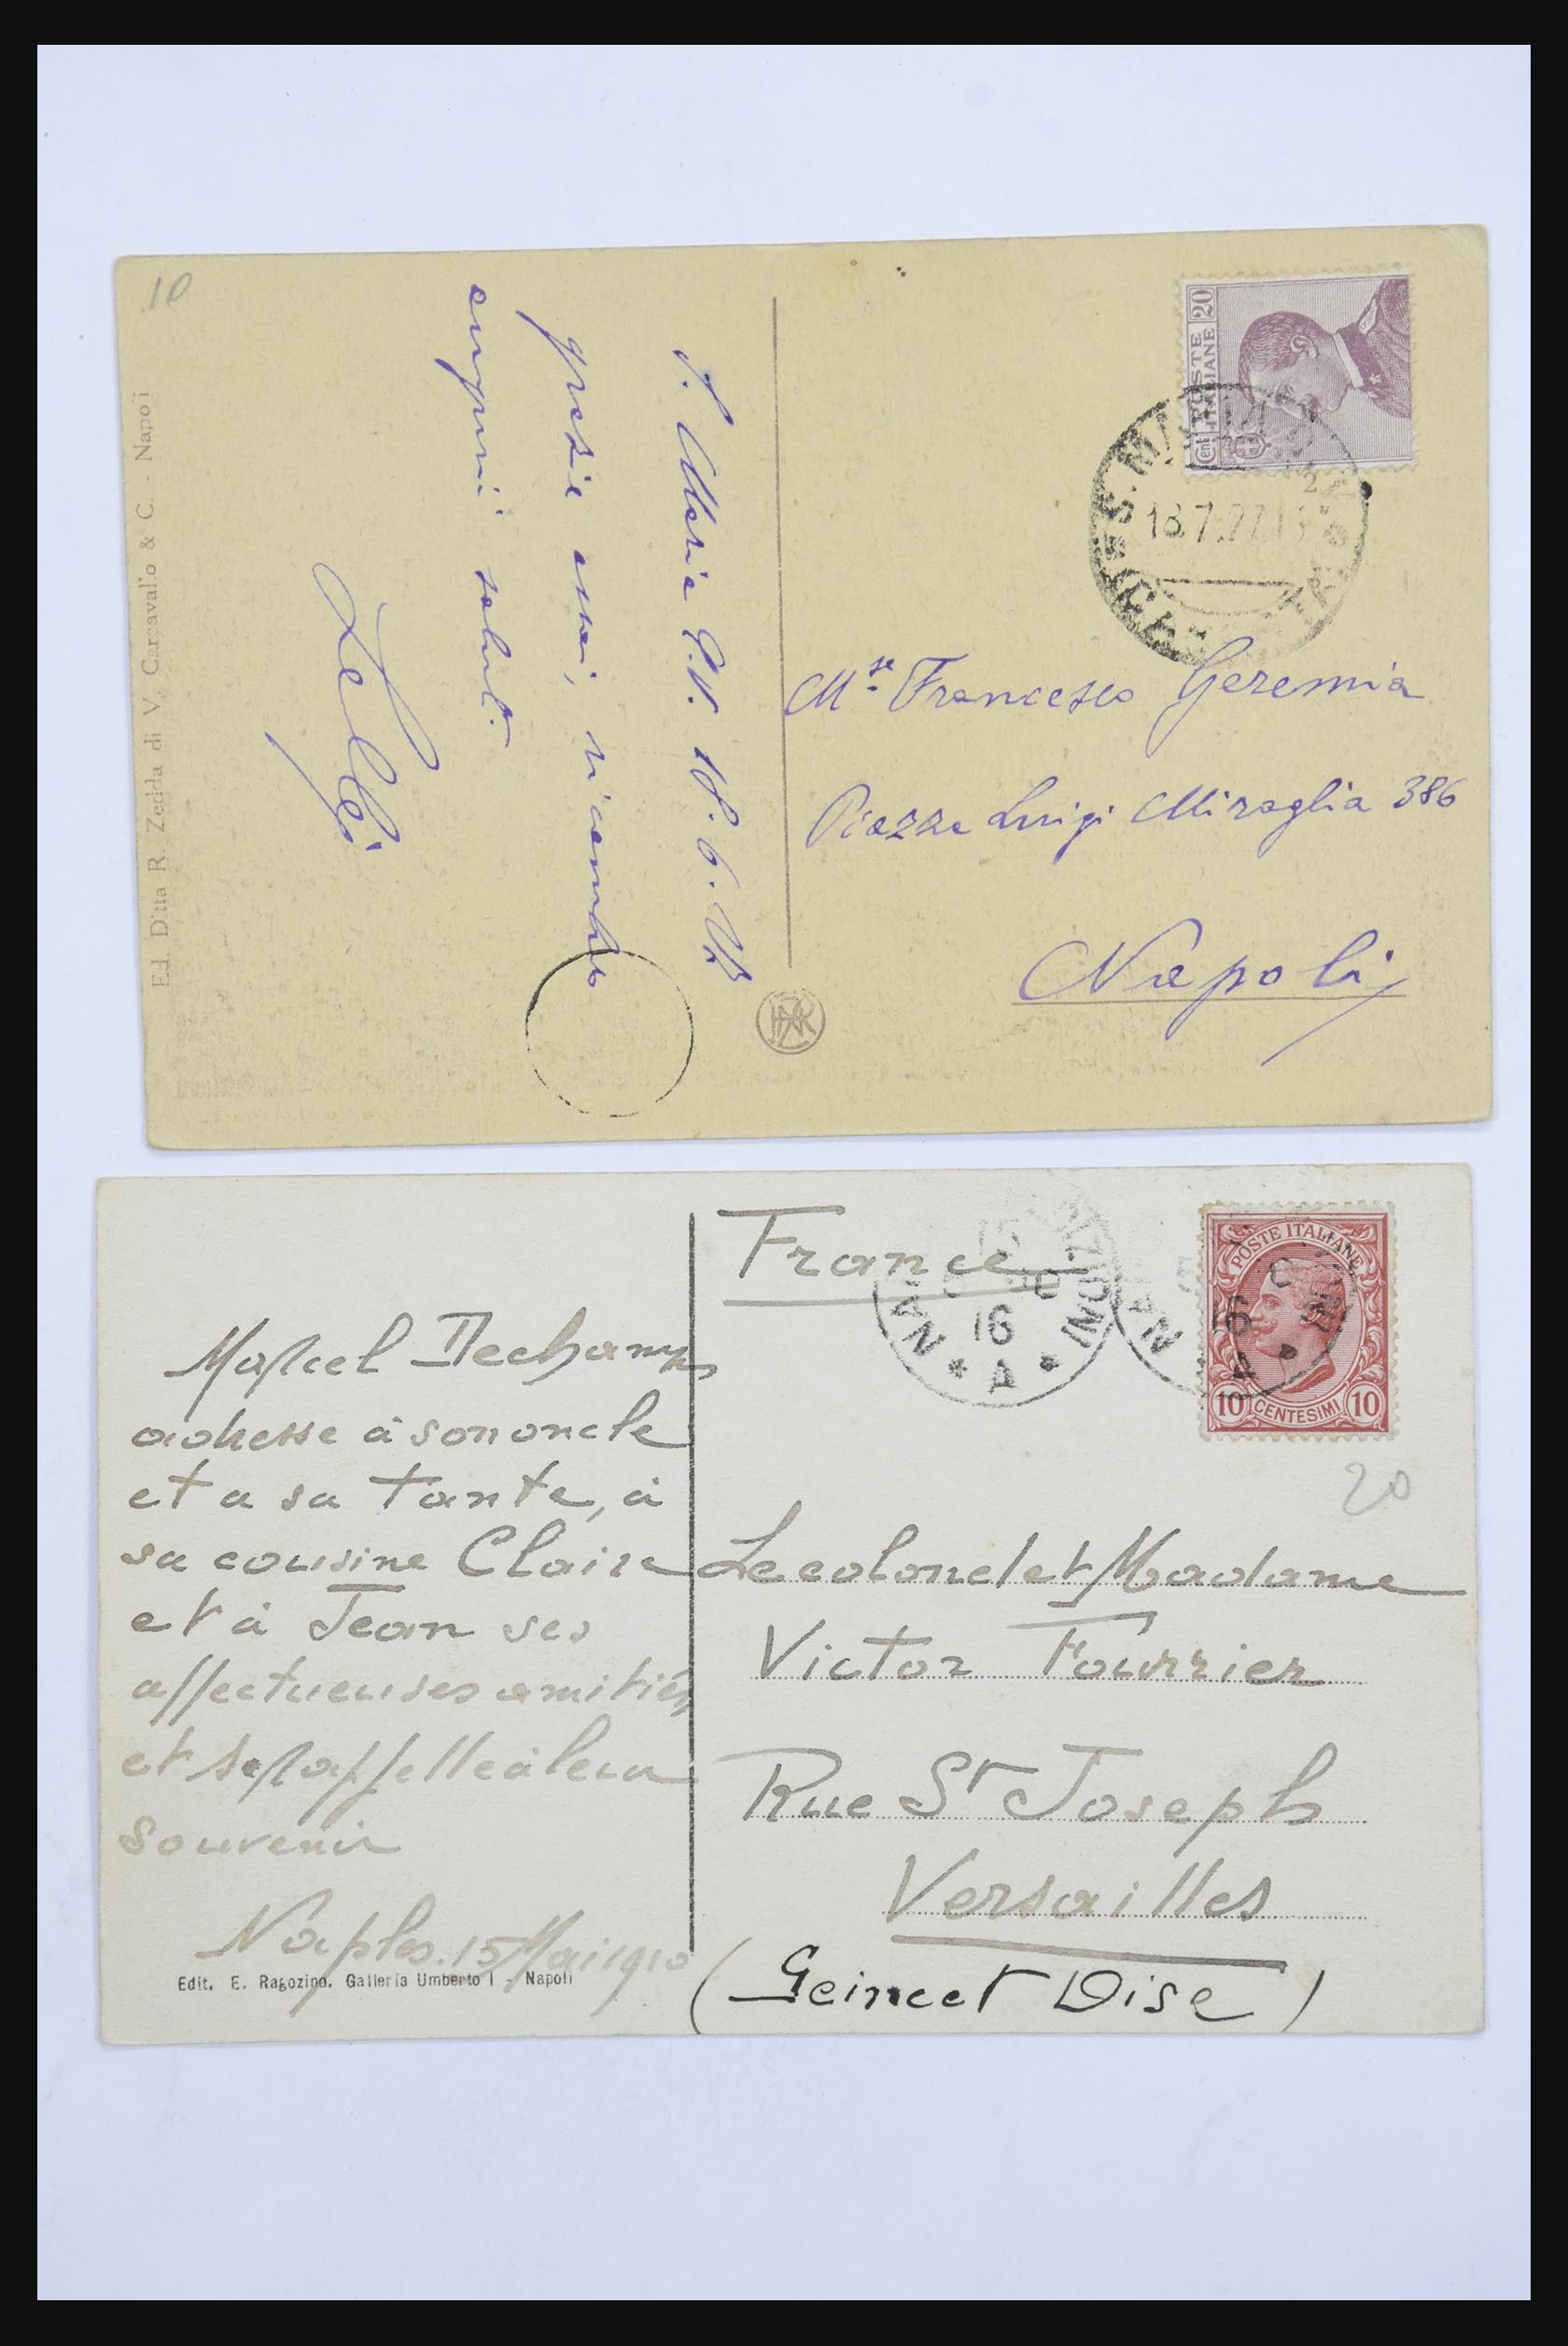 10
POSTE ITALIANE
Cent 20
S. M
18.7.27.1
Ed. Ditta R. Zedda di V. Carcavallo & C. - Napoli
S. Maria C.V. 18.6.
grazie assai, ricambio
auguri saluti.
Mse Francesco Geremia
Piazza Luigi Miraglia 386
Napoli
France
16
* A *
16
A *
POSTE ITALIANE
10 CENTESIMI 10
20
Marcel Dechamps
adresse à son oncle
et a sa tante, à
sa cousine Claire
et à Jean ses
affectueuses amitiés
et se rappelle à leur
souvenir
Naples. 15 Mai 1910
Edit. E. Ragozino. Galleria Umberto I - Napoli
Le colonel et Madame
Victor Fourrier
Rue St Joseph
Versailles
(Seine et Oise)